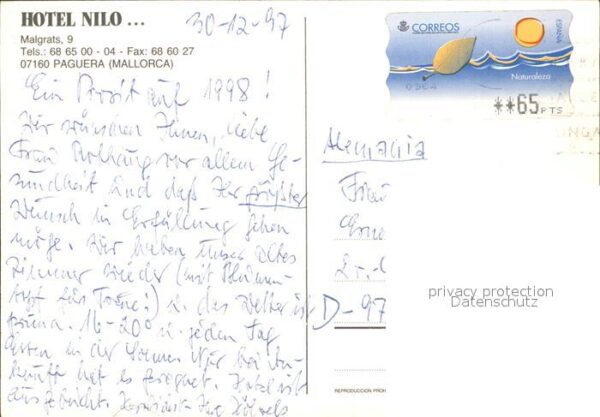 HOTEL NILO ...
Malgrats, 9
Tels.: 68 65 00 - 04 - Fax: 68 60 27
07160 PAGUERA (MALLORCA)
30-12-97
Ein Prosit auf 1998!
Wir wünschen Ihnen, liebe
Frau vor allem Ge-
sundheit und daß Ihr größter
Wunsch in Erfüllung gehen
möge. Wir haben unser altes
Zimmer wieder (mit
für u. das Wetter ist
prima. 16-20° u. jeden Tag
in der Sonne. Nur bei An-
kunft hat es geregnet. Hotel ist
ausgebucht. Herzlichst - Ihre
CORREOS
ESPAÑA
Naturaleza
**65 PTS
Alemania
Frau
D-97
privacy protection
Datenschutz